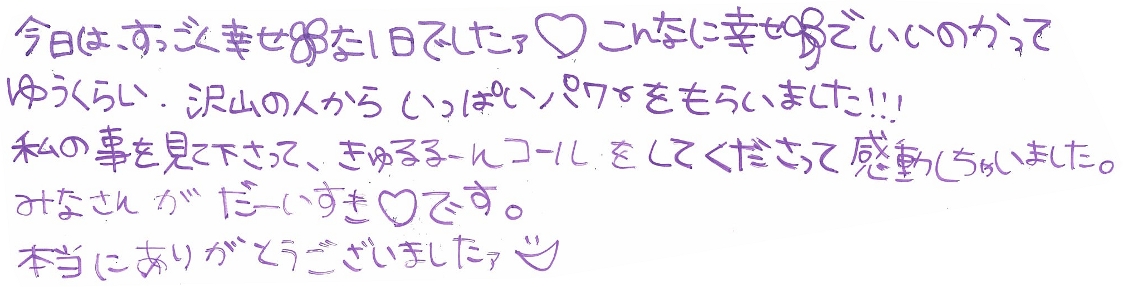 今日は、すっごく幸せな1日でしたァ♡こんなに幸せでいいのかって
ゆうくらい、沢山の人からいっぱいパワーをもらいました!!!
私の事を見て下さって、きゅるるーんコールをしてくださって感動しちゃいました。
みなさんがだーいすき♡です。
本当にありがとうございましたァ